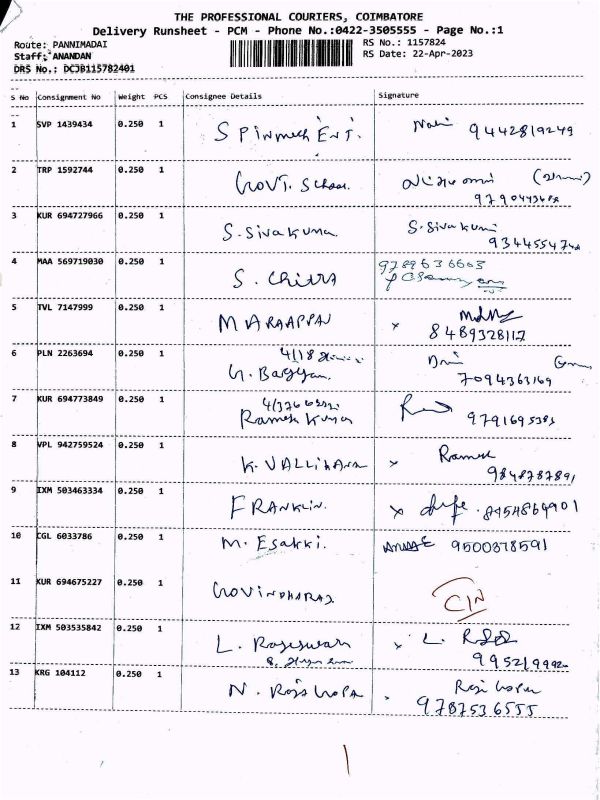 THE PROFESSIONAL COURIERS, COIMBATORE
Delivery Runsheet - PCM - Phone No.:0422-3505555 - Page No.:1
Route: PANNIMADAI RS No.: 1157824
Staff: ANANDAN RS Date: 22-Apr-2023
DRS No.: DCJB115782401
S No Consignment No Weight PCS Consignee Details Signature
1 SVP 1439434 0.250 1 9442819249
2 TRP 1592744 0.250 1 GOVT. School
3 KUR 694727966 0.250 1 S. Siva kumar S. Siva kumar
4 MAA 569719030 0.250 1 S. Chitra 9789636603
5 TVL 7147999 0.250 1 MARAAPPAN x
8489328117
6 PLN 2263694 0.250 1 4/18
7094363169
7 KUR 694773849 0.250 1
Ramesh Kumar 9791695383
8 VPL 942759524 0.250 1 x Ramesh
9848787891
9 IXM 503463334 0.250 1 FRANKLIN. x
10 CGL 6033786 0.250 1 M. Esakki. 9500378591
11 KUR 694675227 0.250 1 GOVINDHARAJ
12 IXM 503535842 0.250 1 L. Rajeswari x L.
13 KRG 104112 0.250 1 N. Raja Gopal
9787536555